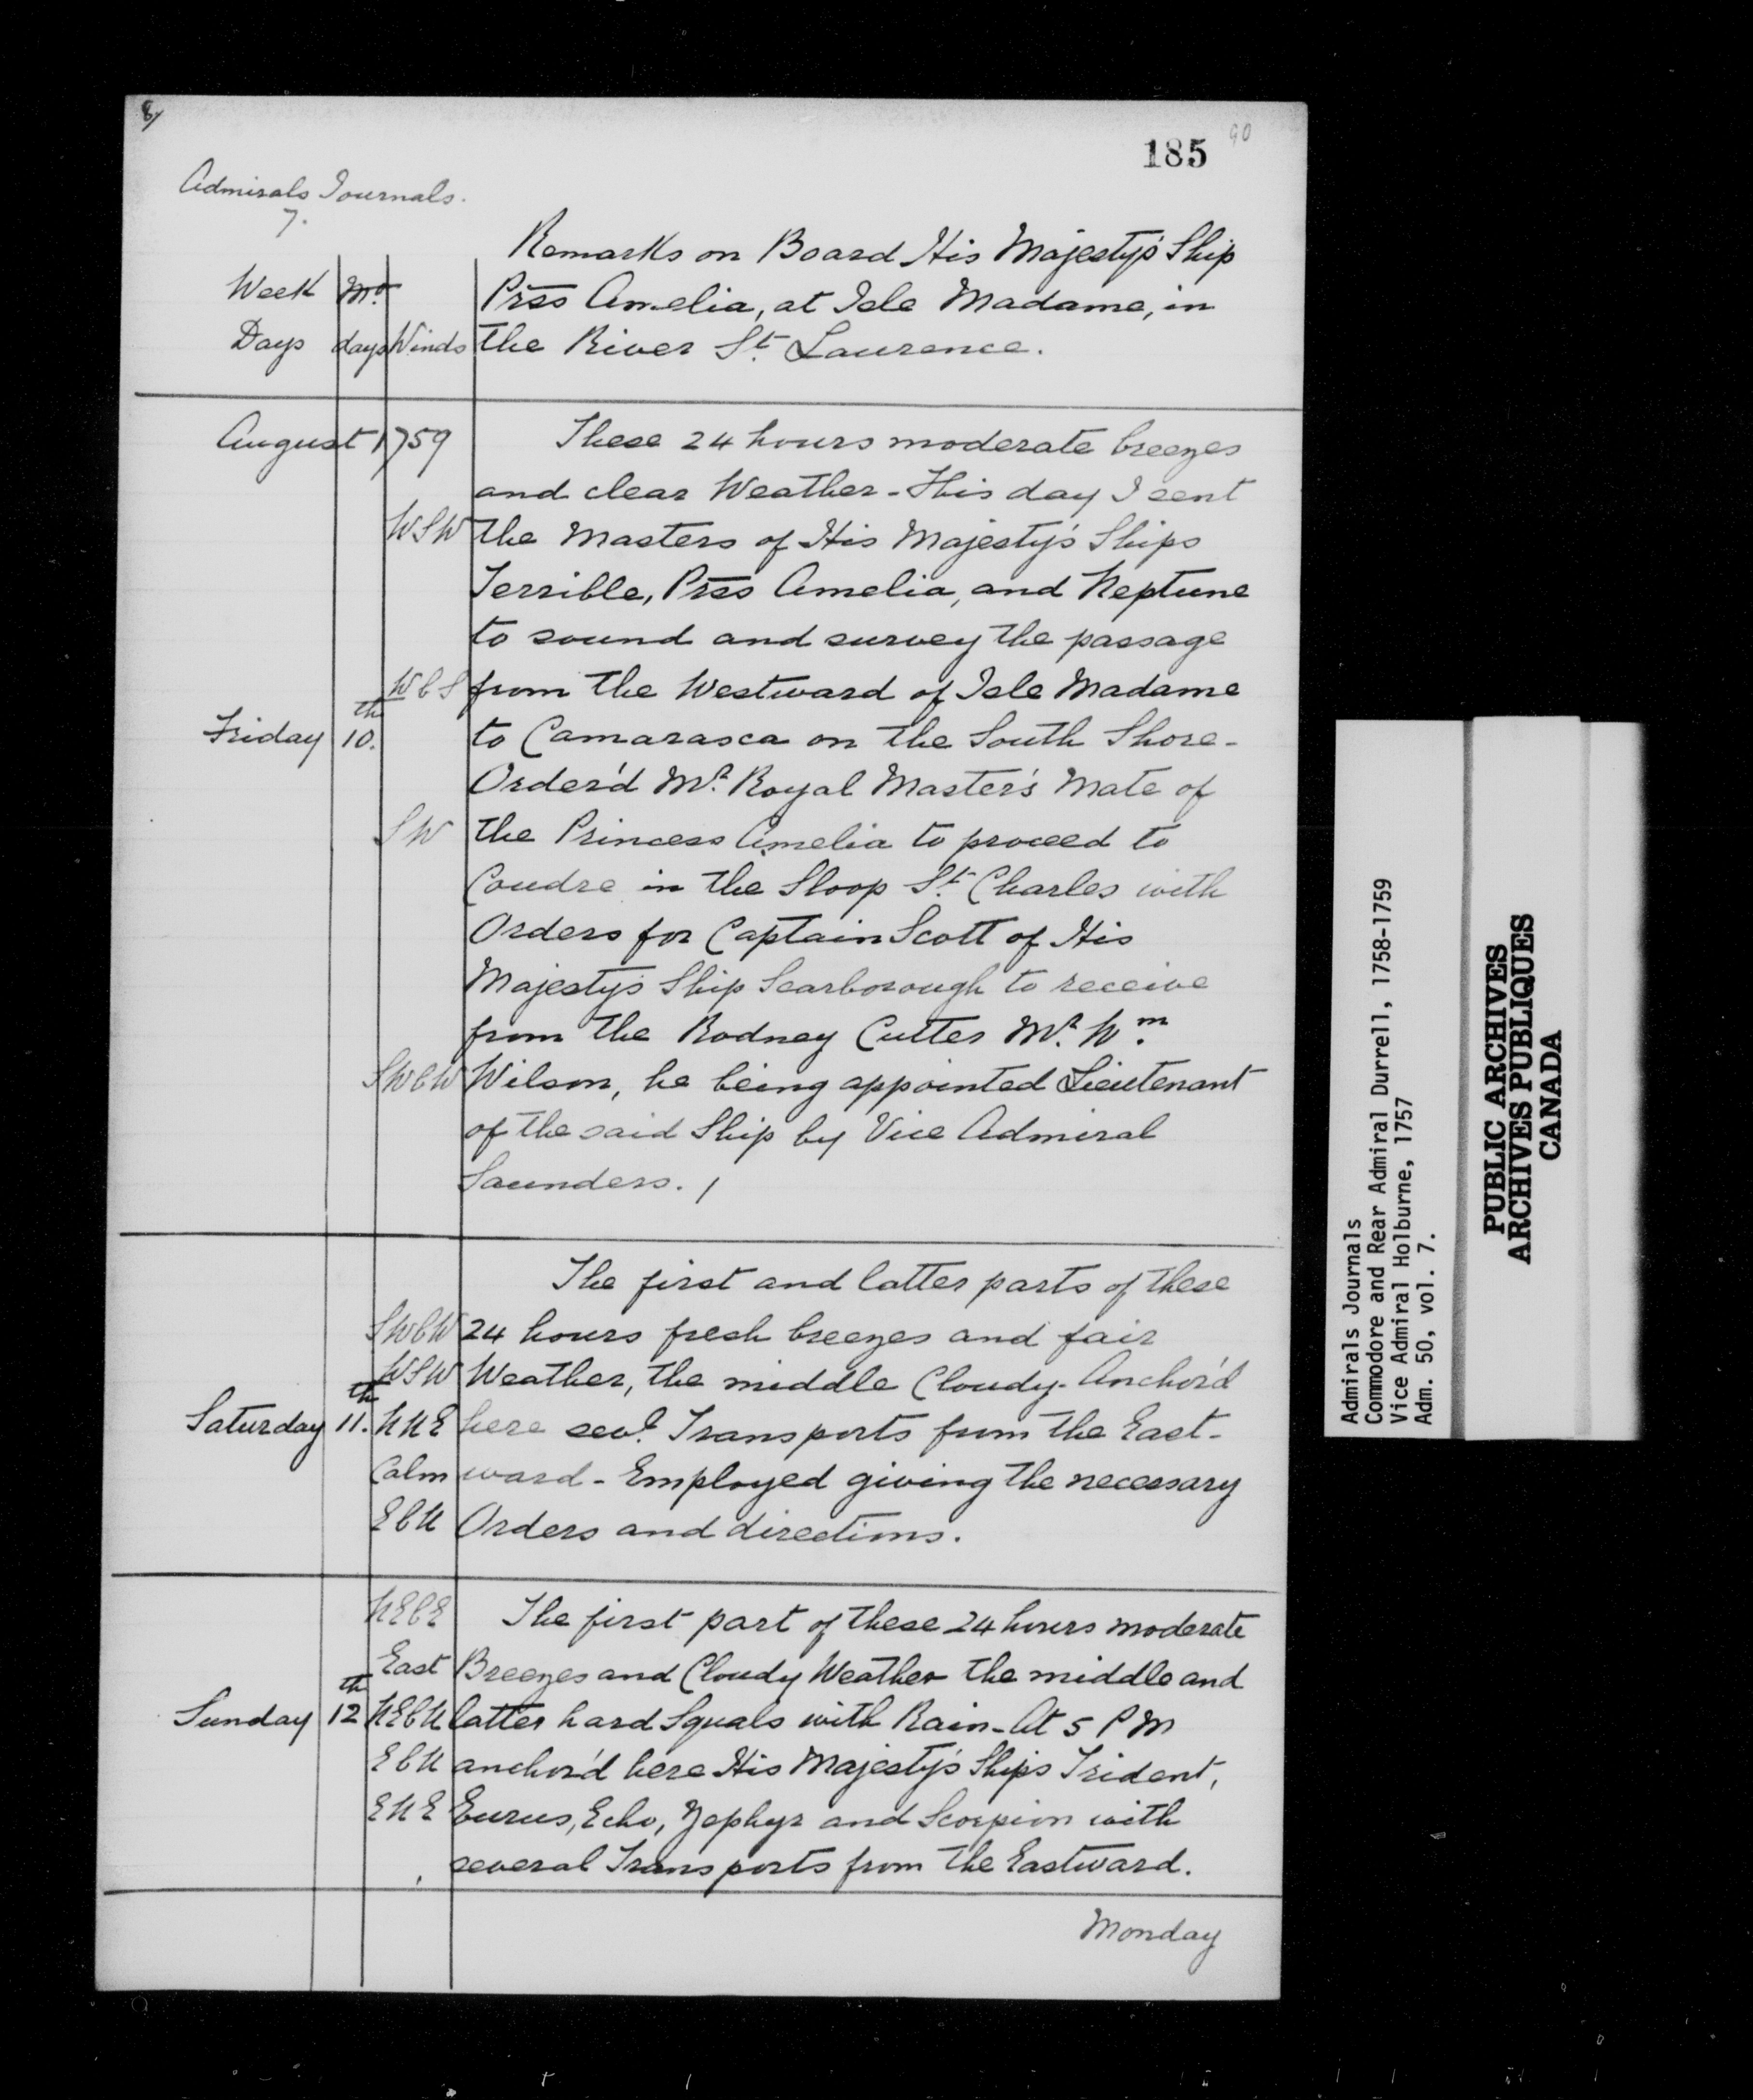 8/
185
90
Admirals Journals.
7.
Remarks on Board His Majesty's Ship
Week Mo. Prss Amelia, at Isle Madame, in
Days days Winds the River St. Laurence.
August 1759 These 24 hours moderate breezes
and clear Weather - This day I sent
WSW the Masters of His Majesty's Ships
Terrible, Prss Amelia, and Neptune
to sound and survey the passage
WbS from the Westward of Isle Madame
Friday 10th. to Camarasca on the South Shore -
Order'd Mr. Royal Master's Mate of
SW the Princess Amelia to proceed to
Coudre in the Sloop St. Charles with
Orders for Captain Scott of His
Majesty's Ship Scarborough to receive
from the Rodney Cutter Mr. Wm.
SWbW Wilson, he being appointed Lieutenant
of the said Ship by Vice Admiral
Saunders. /
The first and latter parts of these
SWbW 24 hours fresh breezes and fair
WSW Weather, the middle Cloudy - Anchor'd
Saturday 11th. NNE here sevl. Transports from the East-
Calm ward - Employed giving the necessary
EbN Orders and directions.
NEbE The first part of these 24 hours moderate
East Breezes and Cloudy Weather the middle and
Sunday 12th NEbN latter hard Squals with Rain - At 5 PM
EbN anchor'd here His Majesty's Ships Trident,
ENE Eurus, Echo, Zephyr and Scorpion with
several Transports from the Eastward.
Monday
Admirals Journals
Commodore and Rear Admiral Durrell, 1758-1759
Vice Admiral Holburne, 1757
Adm. 50, vol. 7.
PUBLIC ARCHIVES
ARCHIVES PUBLIQUES
CANADA